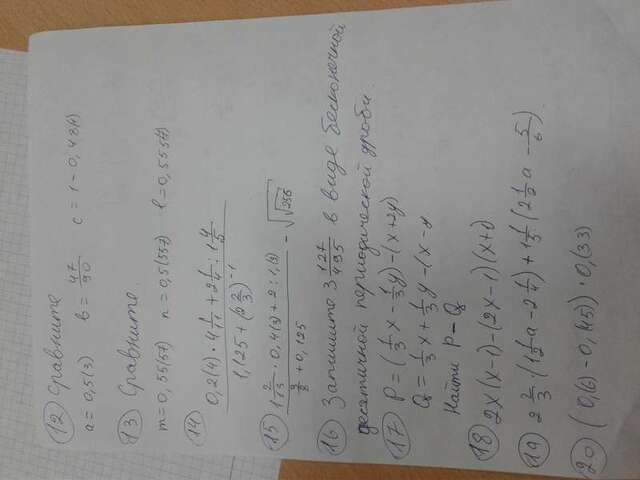 12 Сравните
a = 0,5(3) b = 47/90 c = 1 - 0,48(1)
13 Сравните
m = 0,55(57) n = 0,5(557) l = 0,5557
14 (0,2(4) · 4 1/11 + 2 1/4 : 1 4/5) / (1,125 + (2 2/3)^-1)
15 (1 2/13 · 0,4(3) + 2 : 1,(3)) / (9/8 + 0,125) - √√256
16 Запишите 3 127/495 в виде бесконечной
десятичной периодической дроби.
17 P = (1/3x - 1/3y) - (x + 2y)
Q = 1/3x + 1/3y - (x - y
Найти P - Q
18 2x(x-1) - (2x-1)(x+1)
19 2 2/3 · (1 1/2a - 2 1/4) + 1 1/5 (2 1/2a - 5/6)
20 (0,(6) - 0,(45)) · 0,(33)